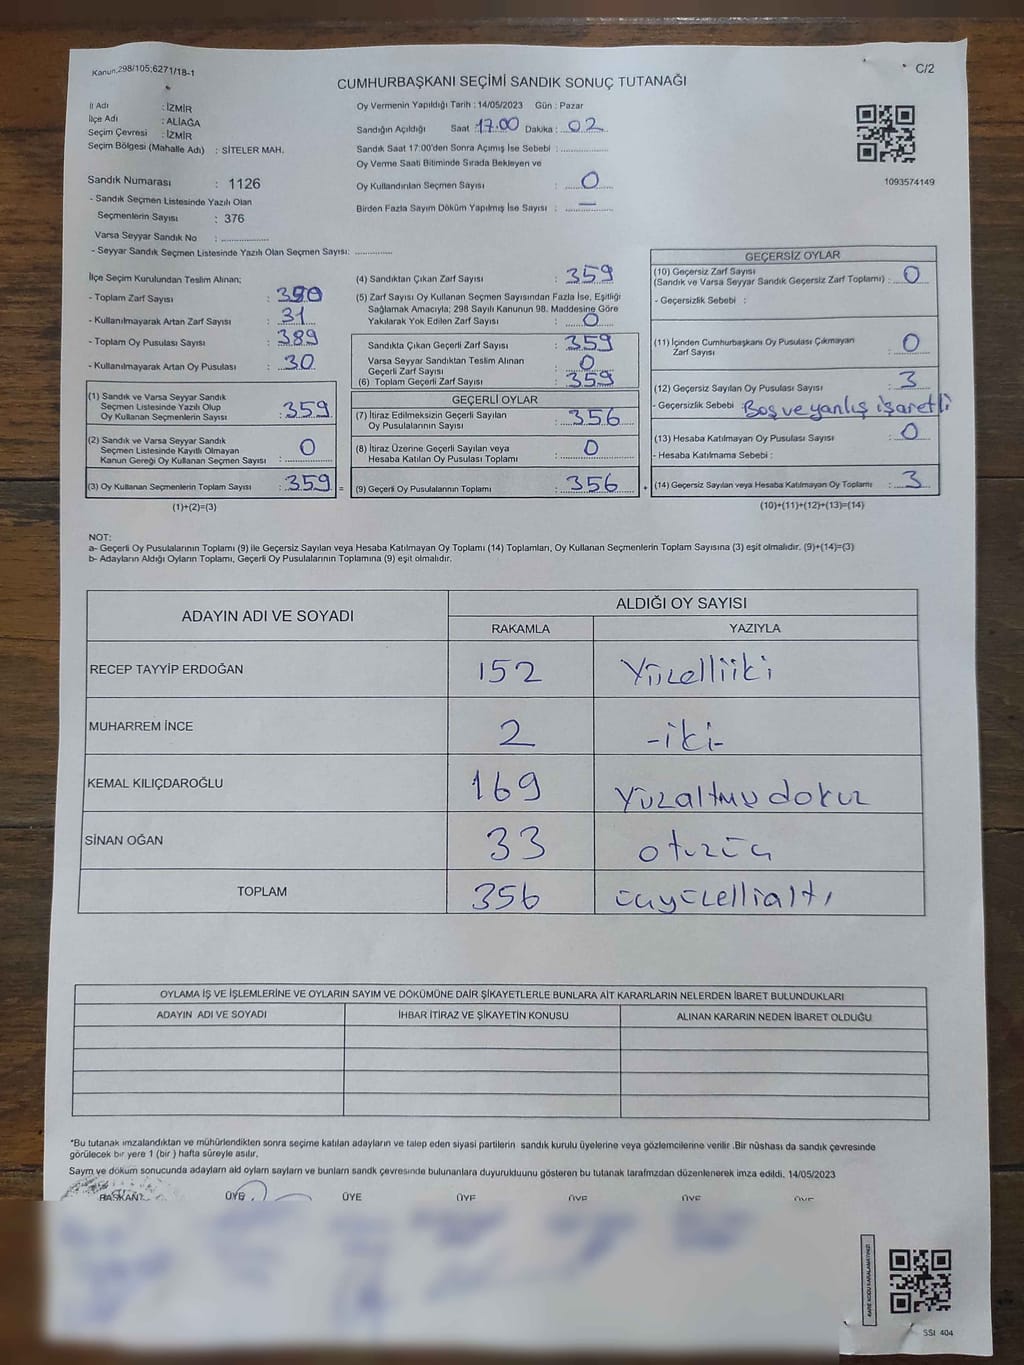 Kanun,298/105;6271/18-1
C/2
CUMHURBAŞKANI SEÇİMİ SANDIK SONUÇ TUTANAĞI
İl Adı : İZMİR
İlçe Adı : ALİAĞA
Seçim Çevresi : İZMİR
Seçim Bölgesi (Mahalle Adı) : SİTELER MAH.
Sandık Numarası : 1126
- Sandık Seçmen Listesinde Yazılı Olan
Seçmenlerin Sayısı : 376
Varsa Seyyar Sandık No : ................
- Seyyar Sandık Seçmen Listesinde Yazılı Olan Seçmen Sayısı: ............
Oy Vermenin Yapıldığı Tarih : 14/05/2023 Gün : Pazar
Sandığın Açıldığı Saat 17.00 Dakika : 02
Sandık Saat 17:00'den Sonra Açımış İse Sebebi : ................
Oy Verme Saati Bitiminde Sırada Bekleyen ve
Oy Kullandırılan Seçmen Sayısı : 0
Birden Fazla Sayım Döküm Yapılmış İse Sayısı : —
1093574149
İlçe Seçim Kurulundan Teslim Alınan;
- Toplam Zarf Sayısı : 390
- Kullanılmayarak Artan Zarf Sayısı : 31
- Toplam Oy Pusulası Sayısı : 389
- Kullanılmayarak Artan Oy Pusulası : 30
(1) Sandık ve Varsa Seyyar Sandık
Seçmen Listesinde Yazılı Olup
Oy Kullanan Seçmenlerin Sayısı : 359
(2) Sandık ve Varsa Seyyar Sandık
Seçmen Listesinde Kayıtlı Olmayan
Kanun Gereği Oy Kullanan Seçmen Sayısı : 0
(3) Oy Kullanan Seçmenlerin Toplam Sayısı : 359 =
(1)+(2)=(3)
(4) Sandıktan Çıkan Zarf Sayısı : 359
(5) Zarf Sayısı Oy Kullanan Seçmen Sayısından Fazla İse, Eşitliği
Sağlamak Amacıyla; 298 Sayılı Kanunun 98. Maddesine Göre
Yakılarak Yok Edilen Zarf Sayısı : 0
Sandıkta Çıkan Geçerli Zarf Sayısı : 359
Varsa Seyyar Sandıktan Teslim Alınan
Geçerli Zarf Sayısı : 0
(6) Toplam Geçerli Zarf Sayısı : 359
GEÇERLİ OYLAR
(7) İtiraz Edilmeksizin Geçerli Sayılan
Oy Pusulalarının Sayısı : 356
(8) İtiraz Üzerine Geçerli Sayılan veya
Hesaba Katılan Oy Pusulası Toplamı : 0
(9) Geçerli Oy Pusulalarının Toplamı : 356 +
GEÇERSİZ OYLAR
(10) Geçersiz Zarf Sayısı
(Sandık ve Varsa Seyyar Sandık Geçersiz Zarf Toplamı) : 0
- Geçersizlik Sebebi :
(11) İçinden Cumhurbaşkanı Oy Pusulası Çıkmayan
Zarf Sayısı : 0
(12) Geçersiz Sayılan Oy Pusulası Sayısı : 3
- Geçersizlik Sebebi Boş ve yanlış işaretli
(13) Hesaba Katılmayan Oy Pusulası Sayısı : 0
- Hesaba Katılmama Sebebi :
(14) Geçersiz Sayılan veya Hesaba Katılmayan Oy Toplamı : 3
(10)+(11)+(12)+(13)=(14)
NOT:
a- Geçerli Oy Pusulalarının Toplamı (9) ile Geçersiz Sayılan veya Hesaba Katılmayan Oy Toplamı (14) Toplamları, Oy Kullanan Seçmenlerin Toplam Sayısına (3) eşit olmalıdır. (9)+(14)=(3)
b- Adayların Aldığı Oyların Toplamı, Geçerli Oy Pusulalarının Toplamına (9) eşit olmalıdır.
ADAYIN ADI VE SOYADI
ALDIĞI OY SAYISI
RAKAMLA YAZIYLA
RECEP TAYYİP ERDOĞAN 152 Yüzelliiki
MUHARREM İNCE 2 -iki-
KEMAL KILIÇDAROĞLU 169 Yüzaltmış dokuz
SİNAN OĞAN 33 otuzüç
TOPLAM 356 üçyüzellialtı
OYLAMA İŞ VE İŞLEMLERİNE VE OYLARIN SAYIM VE DÖKÜMÜNE DAİR ŞİKAYETLERLE BUNLARA AİT KARARLARIN NELERDEN İBARET BULUNDUKLARI
ADAYIN ADI VE SOYADI İHBAR İTİRAZ VE ŞİKAYETİN KONUSU ALINAN KARARIN NEDEN İBARET OLDUĞU
*Bu tutanak imzalandıktan ve mühürlendikten sonra seçime katılan adayların ve talep eden siyasi partilerin sandık kurulu üyelerine veya gözlemcilerine verilir .Bir nüshası da sandık çevresinde
görülecek bir yere 1 (bir ) hafta süreyle asılır.
Saym ve dokum sonucunda adaylarn ald oylarn saylarn ve bunlarn sandk çevresinde bulunanlara duyurulduunu gösteren bu tutanak tarafmzdan düzenlenerek imza edildi. 14/05/2023
BAŞKAN ÜYE ÜYE ÜYE ÜYE ÜYE ÜYE
KARE KODU KARALAMAYINIZ!
SSI 404